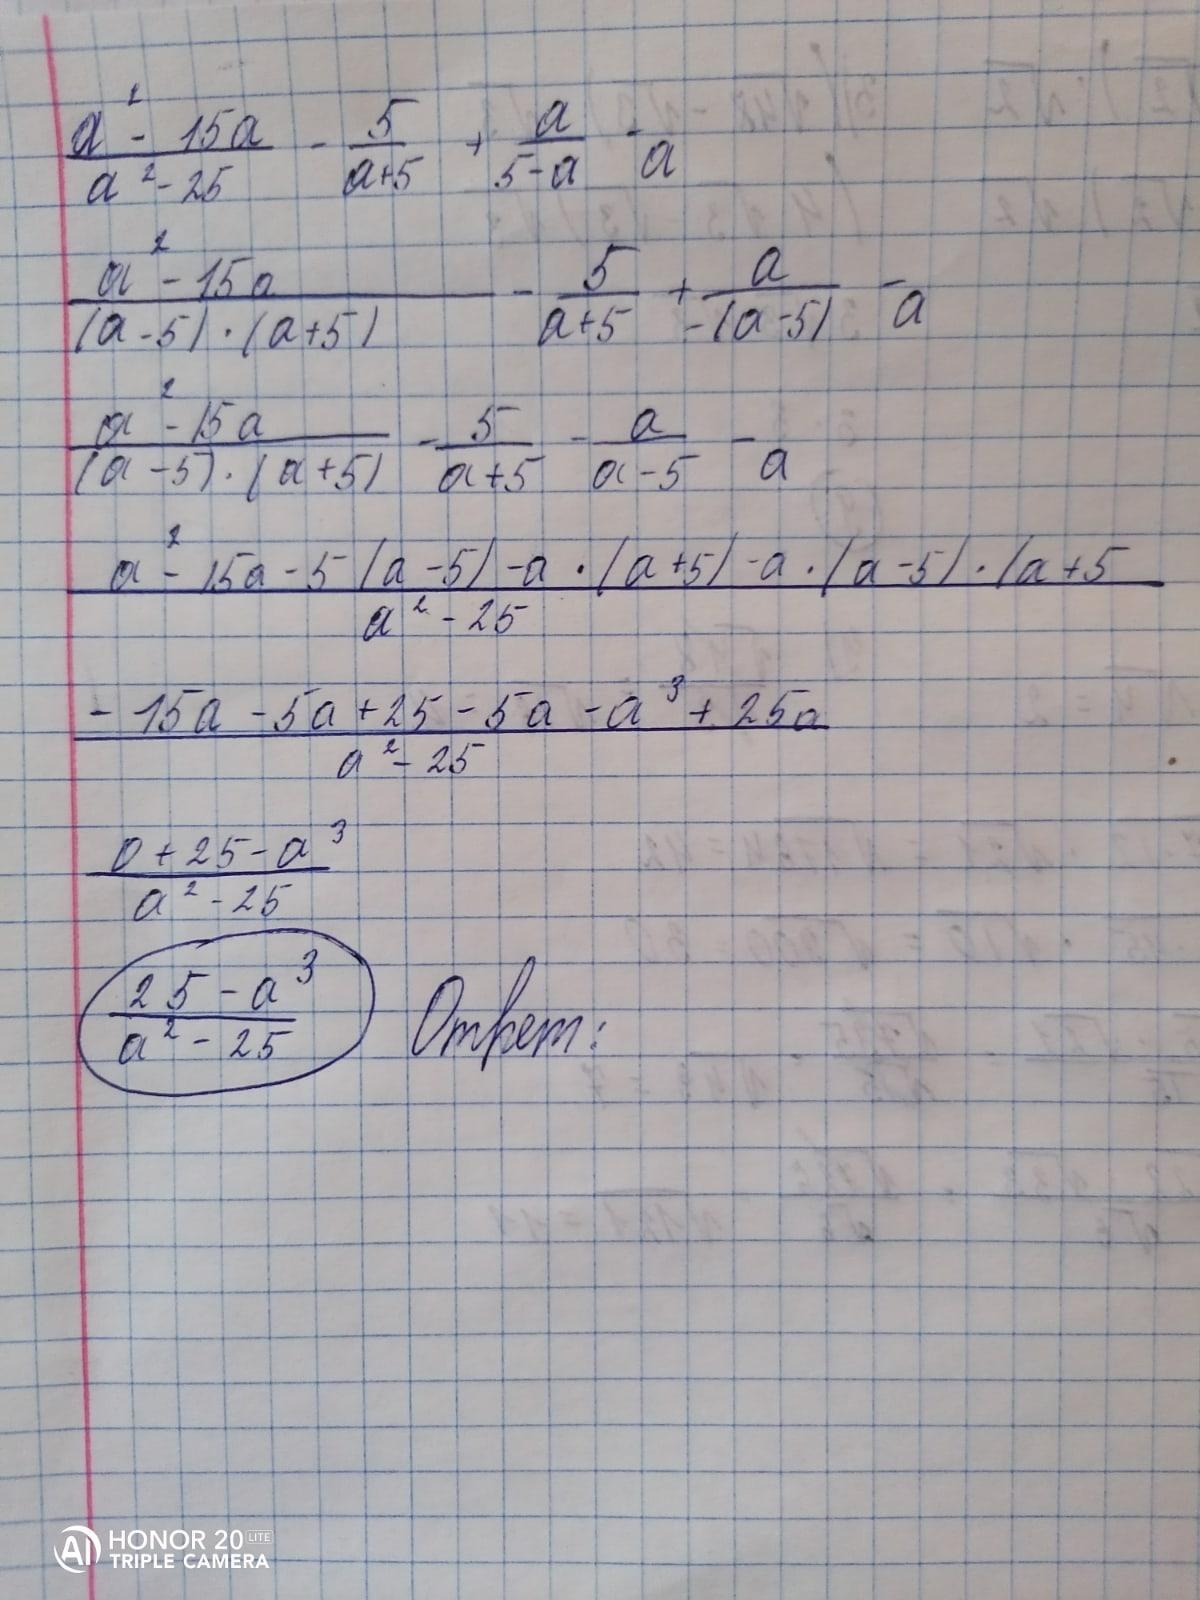 a² - 15a / a² - 25 - 5 / a+5 + a / 5-a - a
a² - 15a / (a-5)·(a+5) - 5 / a+5 + a / -(a-5) - a
a² - 15a / (a-5)·(a+5) - 5 / a+5 - a / a-5 - a
a² - 15a - 5(a-5) - a·(a+5) - a·(a-5)·(a+5 / a² - 25
- 15a - 5a + 25 - 5a - a³ + 25a / a² - 25
0 + 25 - a³ / a² - 25
25 - a³ / a² - 25 Ответ:
AI HONOR 20 LITE
TRIPLE CAMERA